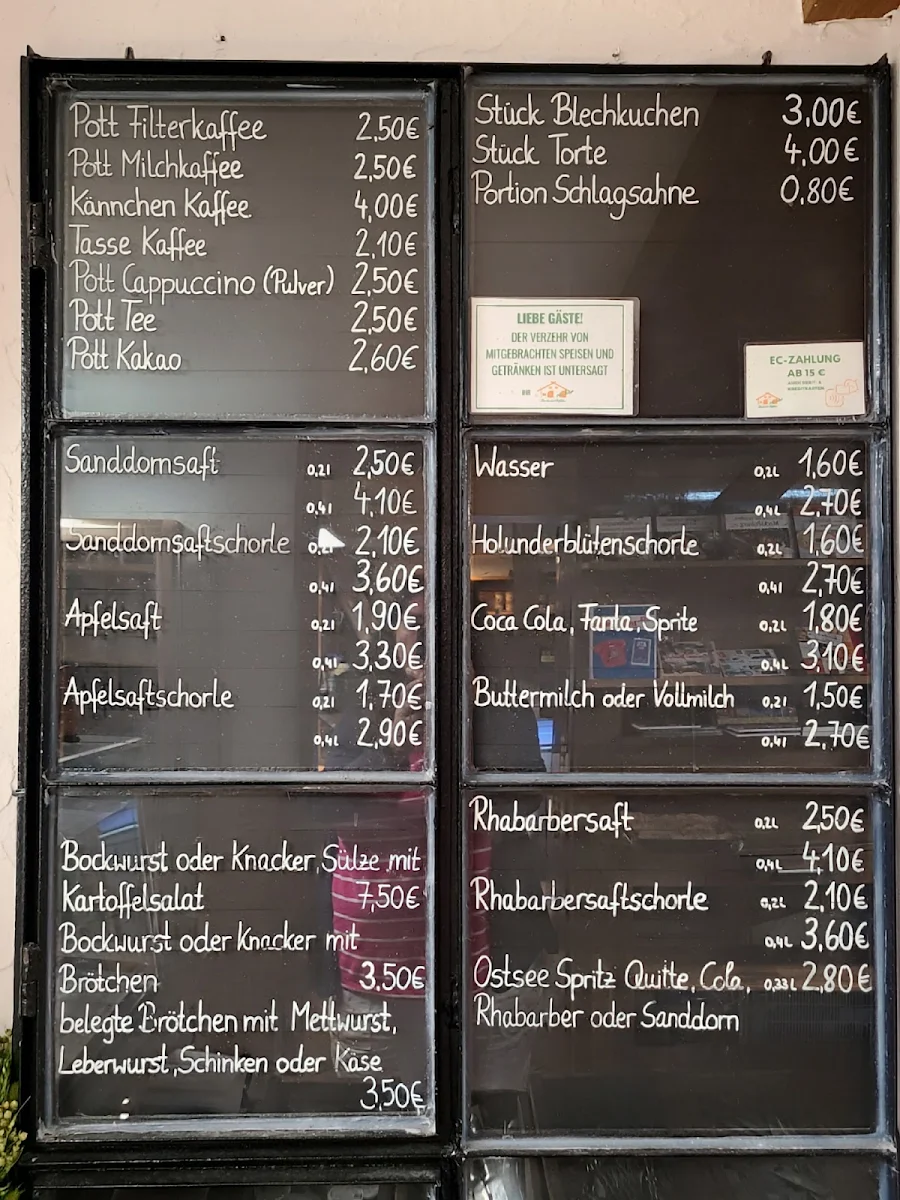 Pott Filterkaffee 2,50€
Pott Milchkaffee 2,50€
Kännchen Kaffee 4,00€
Tasse Kaffee 2,10€
Pott Cappuccino (Pulver) 2,50€
Pott Tee 2,50€
Pott Kakao 2,60€
Stück Blechkuchen 3,00€
Stück Torte 4,00€
Portion Schlagsahne 0,80€
LIEBE GÄSTE!
DER VERZEHR VON
MITGEBRACHTEN SPEISEN UND
GETRÄNKEN IST UNTERSAGT
EC-ZAHLUNG
AB 15 €
Sanddornsaft 0,2l 2,50€
0,4l 4,10€
Sanddornsaftschorle 0,2l 2,10€
0,4l 3,60€
Apfelsaft 0,2l 1,90€
0,4l 3,30€
Apfelsaftschorle 0,2l 1,70€
0,4L 2,90€
Wasser 0,2L 1,60€
0,4L 2,70€
Holunderblütenschorle 0,2L 1,60€
0,4l 2,70€
Coca Cola, Fanta, Sprite 0,2L 1,80€
0,4L 3,10€
Buttermilch oder Vollmilch 0,2l 1,50€
0,4l 2,70€
Bockwurst oder Knacker, Sülze mit
Kartoffelsalat 7,50€
Bockwurst oder Knacker mit
Brötchen 3,50€
belegte Brötchen mit Mettwurst,
Leberwurst, Schinken oder Käse
3,50€
Rhabarbersaft 0,2L 2,50€
0,4L 4,10€
Rhabarbersaftschorle 0,2L 2,10€
0,4L 3,60€
Ostsee Spritz Quitte, Cola, 0,33L 2,80€
Rhabarber oder Sanddorn